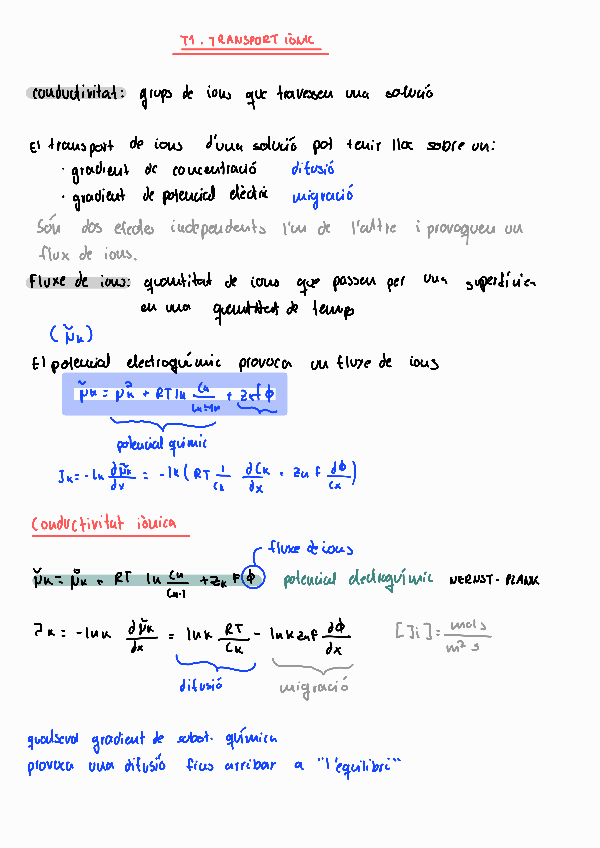 T1. TRANSPORT IÒNIC
conductivitat: grups de ions que travessen una solució
El transport de ions d'una solució pot tenir lloc sobre un:
· gradient de concentració difusió
· gradient de potencial elèctric migració
Són dos efectes independents l'un de l'altre i provoquen un
flux de ions.
Fluxe de ions: quantitat de ions que passen per una superfície
en una quantitat de temps
(μ̃k)
El potencial electroquímic provoca un fluxe de ions
μ̃k = μ°k + RT ln Ck + zkFϕ
potencial químic
Jk = -lk ∂μ̃k/∂x = -lk ( RT 1/Ck ∂Ck/∂x + zk F ∂ϕ/∂x )
Conductivitat iònica
fluxe de ions
μ̃k = μ°k + RT ln Ck/Ck=1 + zk F ϕ potencial electroquímic NERNST-PLANK
Jk = -lnk ∂μ̃k/∂x = lnk RT/Ck - lnk zkF ∂ϕ/∂x [Ji] = mols/m² s
difusió migració
qualsevol gradient de subst. química
provoca una difusió fins arribar a "l'equilibri"